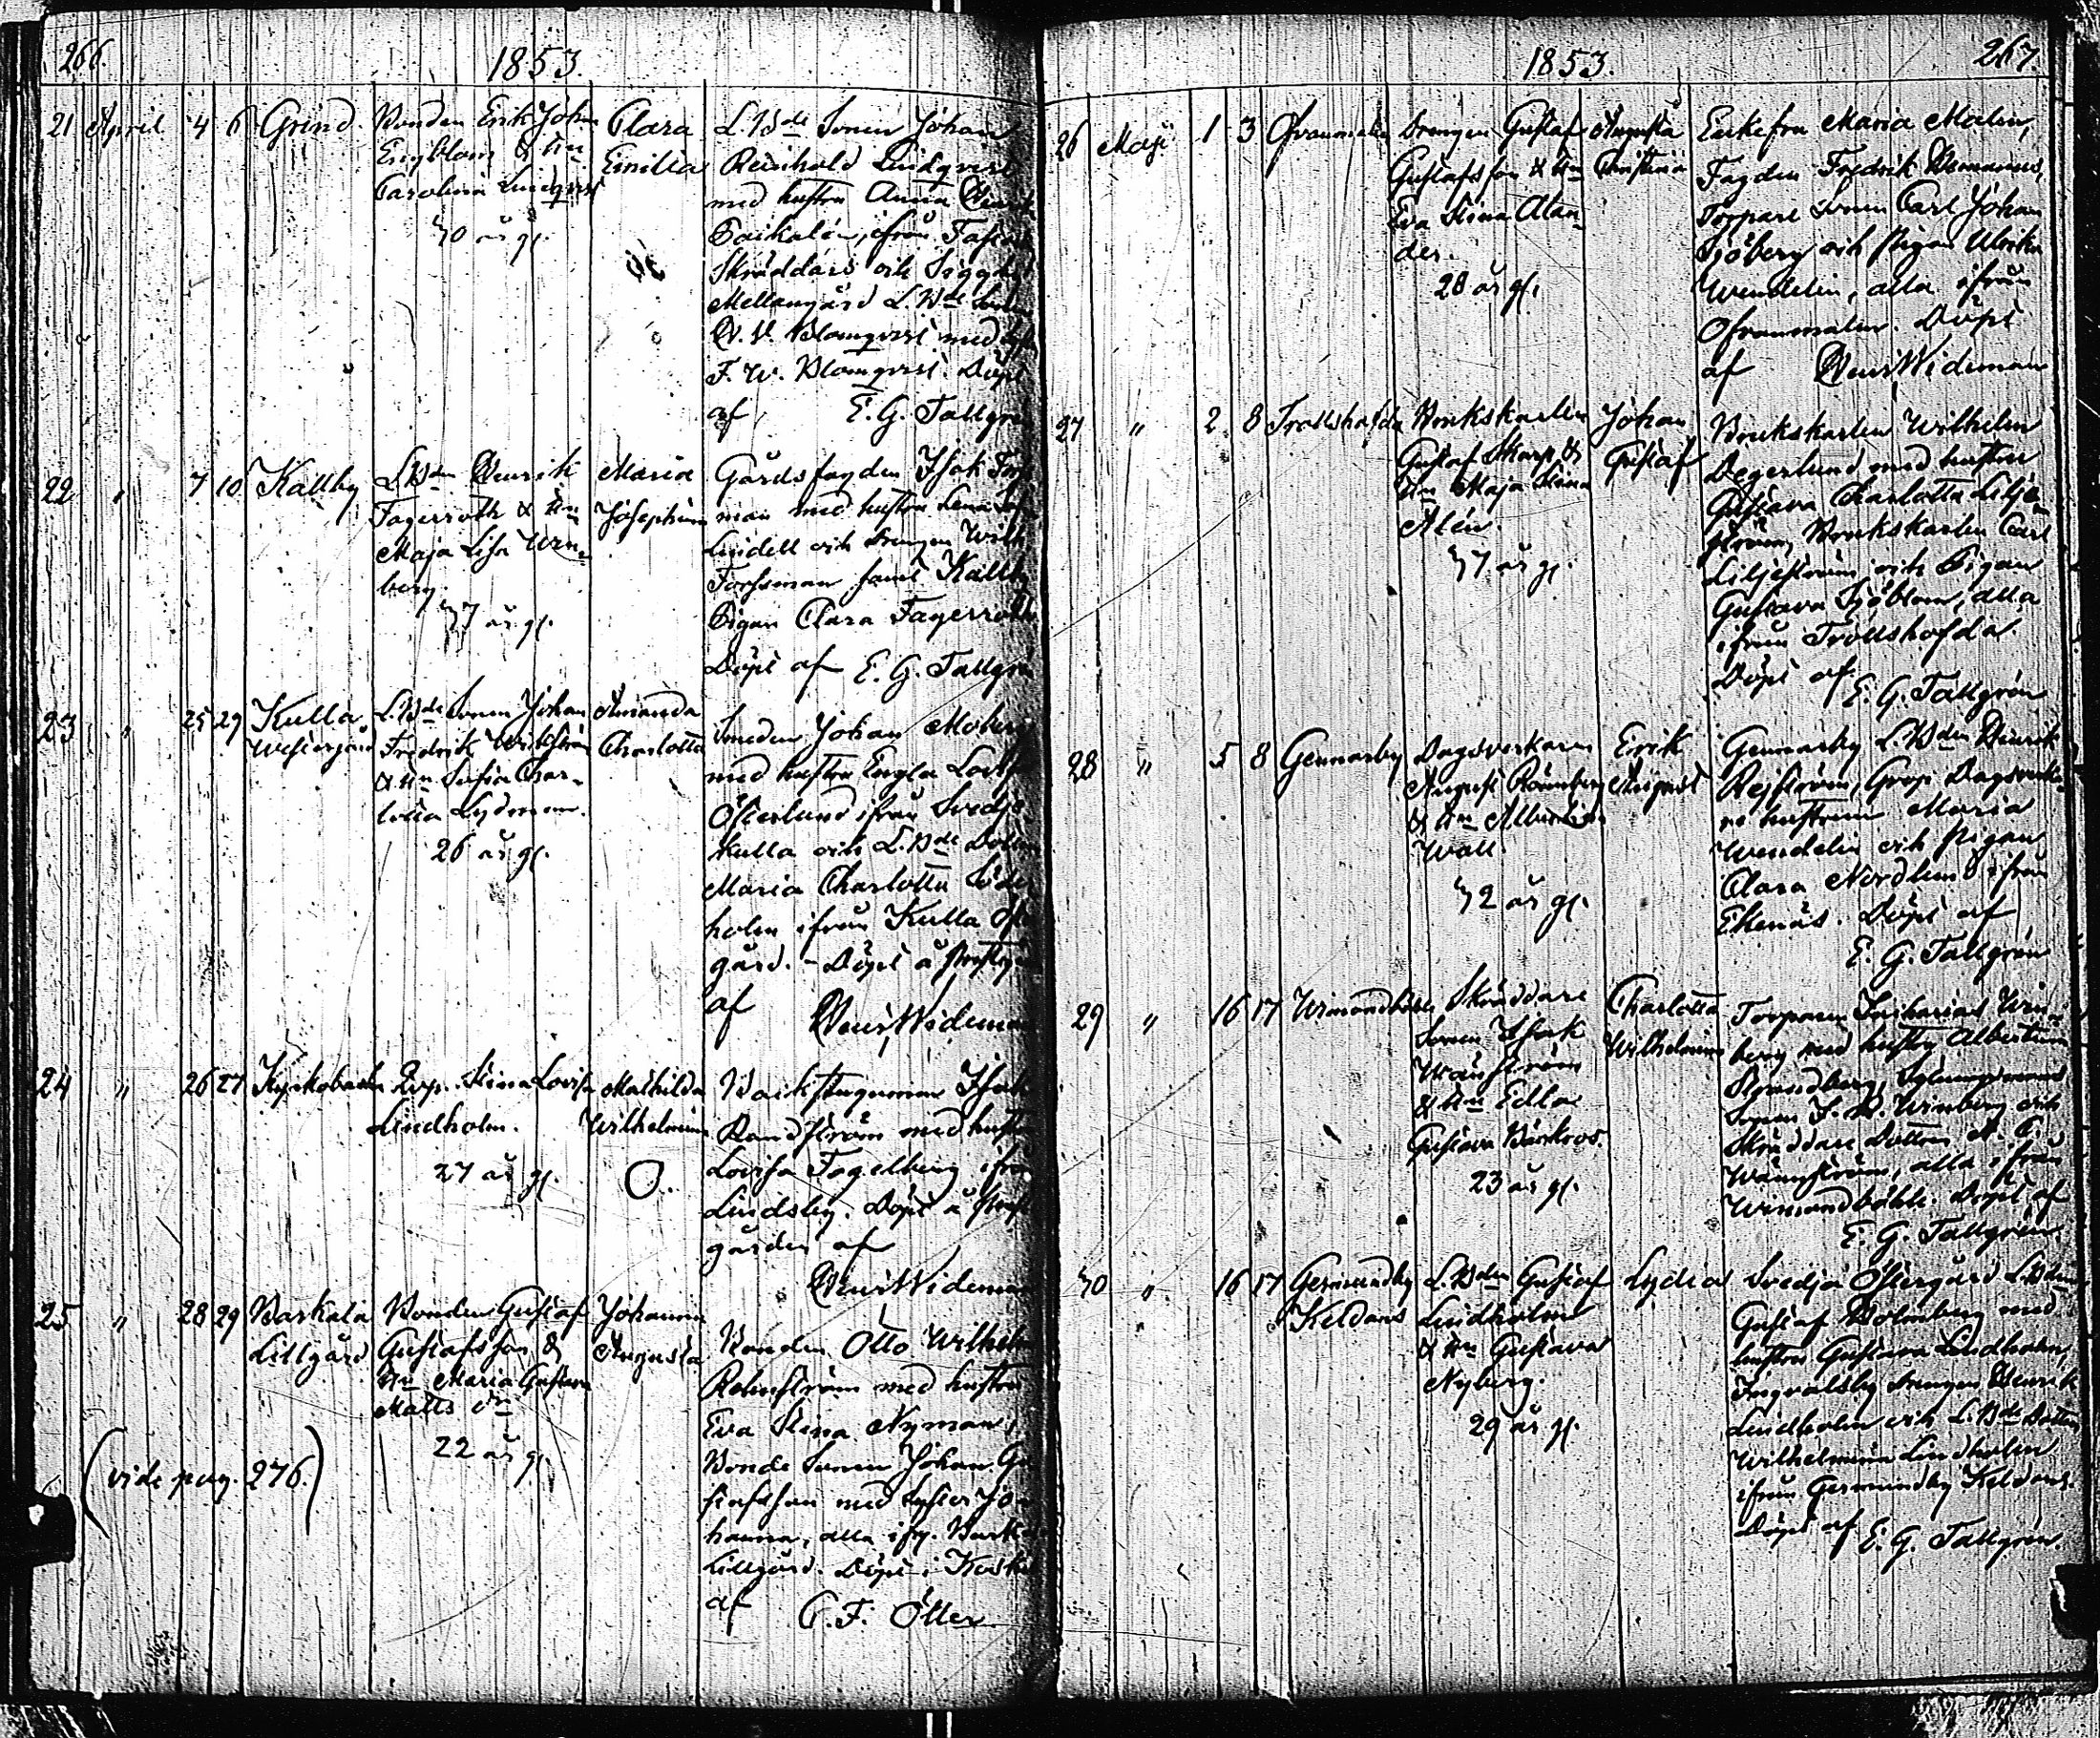 266.
1853.
21 April 4 6 Grind
Bonden Erik Joh
Engblom & Hu
Carolina Lindqvist
30 år gl.
Clara
Emilia
L.Bde Sonen Johan
Reinhold Lindqvist
med hustru Anna
ifrån
Skräddars och Siggby
Mellangård L.Bde
Blomqvist med
F. W. Blomqvist. Döpt
af E. G. Tallgrén
22 " 7 10 Kallby
LBdn Henrik
Fagerroth & Hu
Maja Lisa Wen-
berg
37 år gl.
Maria
Josephina
Gårdsfogden Isak Fors
man med hustru Lena
Lindell och Drengen Wilh
Forssman samt Kallby
Pigan Clara Fagerroth
Döpt af E. G. Tallgrén
23 " 25 29 Kulla
Westergård
L.Bde Sonen Johan
Fredrik Wikström
& Hu Sofia Char-
lotta Lydman.
26 år gl.
Amanda
Charlotta
Smeden Johan Moberg
med hustru Engla Lovisa
Österlund ifrån Svedje
kulla och L.Bde Dottren
Maria Charlotta Söder
holm ifrån Kulla Öster
gård. - Döpt å Prestgå
af Henr Wideman
24 " 26 27 Kyrkobacken
Qvp. Stina Lovisa
Lindholm.
27 år gl.
Mathilda
Wilhelmina
O.
Backstuguman Isak
Randström med hustru
Lovisa Fogelberg ifrån
Lindsby. Döpt å Prest
gården af
Henr Wideman
25 " 28 29 Barkala
Lillgård
Bonden Gustaf
Gustafsson &
Hu Maria Gustava
Matts dr
22 år gl.
Johanna
Augusta
Bonden Otto Wilhelm
Holmström med hustru
Eva Stina Nyman,
Bonde Sonen Johan Gu
stafsson med Syster Jo
hanna, alla ifr. Bark
Lillgård. Döpt i Koski
af C. F. Öller
(vide pag. 276.)
1853.
267.
26 Maji 1 3 Ofvanmalm
Drengen Gustaf
Gustafsson & Hu
Eva Stina Alan-
der.
28 år gl.
Augusta
Christina
Enkefru Maria Malm,
Fogden Fredrik
Torpare Sonen Carl Johan
Sjöberg och Pigan Ulrika
Wendelin, alla ifrån
Ofvanmalm. Döpt
af Henr Wideman
27 " 2 8 Trollshofda
Brukskarlen
Gustaf Skarp &
Hu Maja Stina
Alén.
37 år gl.
Johan
Gustaf
Brukskarlen Wilhelm
Degerlund med hustru
Gustava Charlotta Lilje-
ström, Brukskarlen Carl
Liljeström och Pigan
Gustava Sjöblom, alla
ifrån Trollshofda.
Döpt af
E. G. Tallgrén
28 " 5 8 Gennarby
Dagsverkaren
August Rönnberg
& Hu Albertina
Wall
32 år gl.
Erik
August
Gennarby L.Bdn Henrik
Rejström, Grop Dagsverka-
re hustrun Maria
Wendelin och Pigan
Clara Nordlund ifrån
Ekenäs. Döpt af
E. G. Tallgrén
29 " 16 17 Wimondböhle
Skräddare
Sonen Isak
Wänström
& Hu Edla
Gustava Bärkros
23 år gl.
Charlotta
Wilhelmina
Torparen Zacharias Win-
berg med hustru Albertina
Strandberg,
Sonen J. H. Winberg och
Skräddare Dottren
Wänström, alla ifrån
Wimondböhle. Döpt af
E. G. Tallgrén.
30 " 16 17 Germundby
Keldans
L.Bdn Gustaf
Lindholm
& Hu Gustava
Nyberg.
29 år gl.
Lydia
Svedja Östergård LBdn
Gustaf Holmberg med
hustru Gustava Lindholm,
Ingvalsby Drengen Henrik
Lindholm och L.Bde Dottren
Wilhelmina Lindholm
ifrån Germundby Keldans.
Döpt af E. G. Tallgrén.